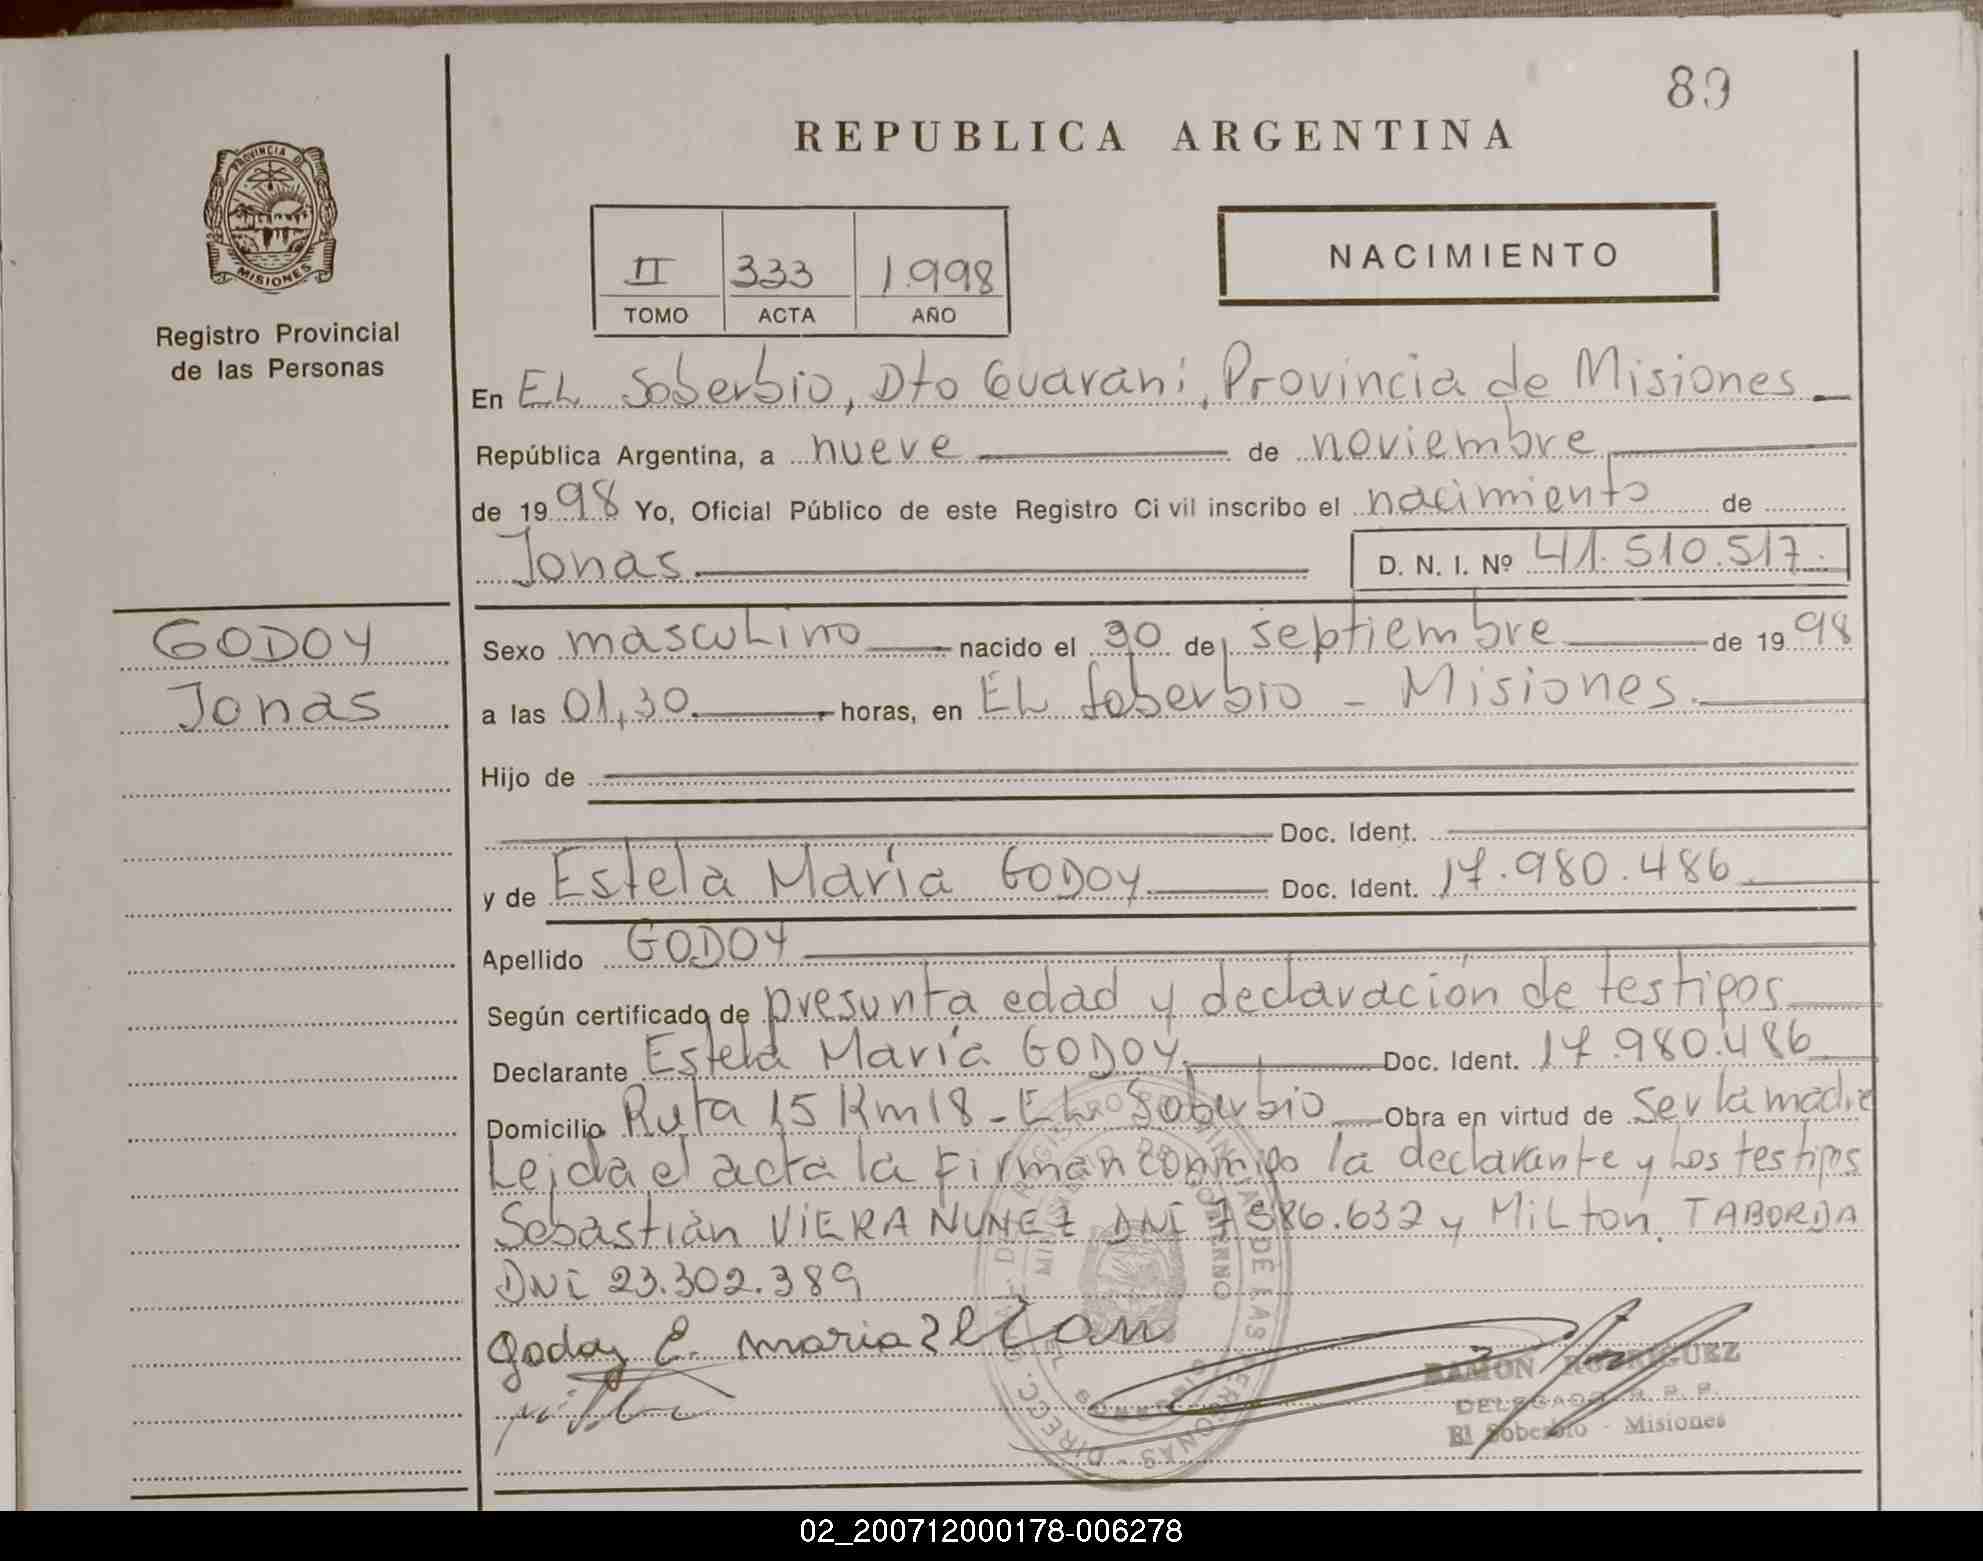 89
REPUBLICA ARGENTINA
PROVINCIA DE
MISIONES
Registro Provincial
de las Personas
II 333 1.998
TOMO ACTA AÑO
NACIMIENTO
En EL Soberbio, Dto Guaraní, Provincia de Misiones
República Argentina, a nueve de noviembre
de 1998 Yo, Oficial Público de este Registro Civil inscribo el nacimiento de
Jonas D. N. I. Nº 41.510.517.
GODOY
Jonas
Sexo masculino nacido el 30 de septiembre de 1998
a las 01,30 horas, en EL Soberbio - Misiones
Hijo de
Doc. Ident.
y de Estela María GODOY Doc. Ident. 17.980.486
Apellido GODOY
Según certificado de presunta edad y declaración de testigos
Declarante Estela María GODOY Doc. Ident. 17.980.486
Domicilio Ruta 15 Km 18 - EL Soberbio Obra en virtud de Ser la madre
Leida el acta la firman conmigo la declarante y Los testigos
Sebastián VIERA NUNEZ DNI 7586.632 y Milton TABORDA
DNI 23.302.389
Godoy E. maria
RAMON RODRIGUEZ
DELEGADO R. P. P.
El Soberbio - Misiones
02_200712000178-006278